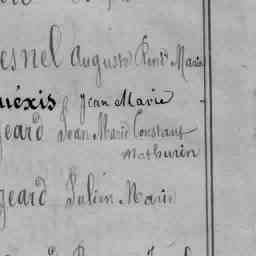 esnel Auguste René Marie
uéxis Jean Marie
geard Jean Marie Constant
Mathurin
geard Julien Marie